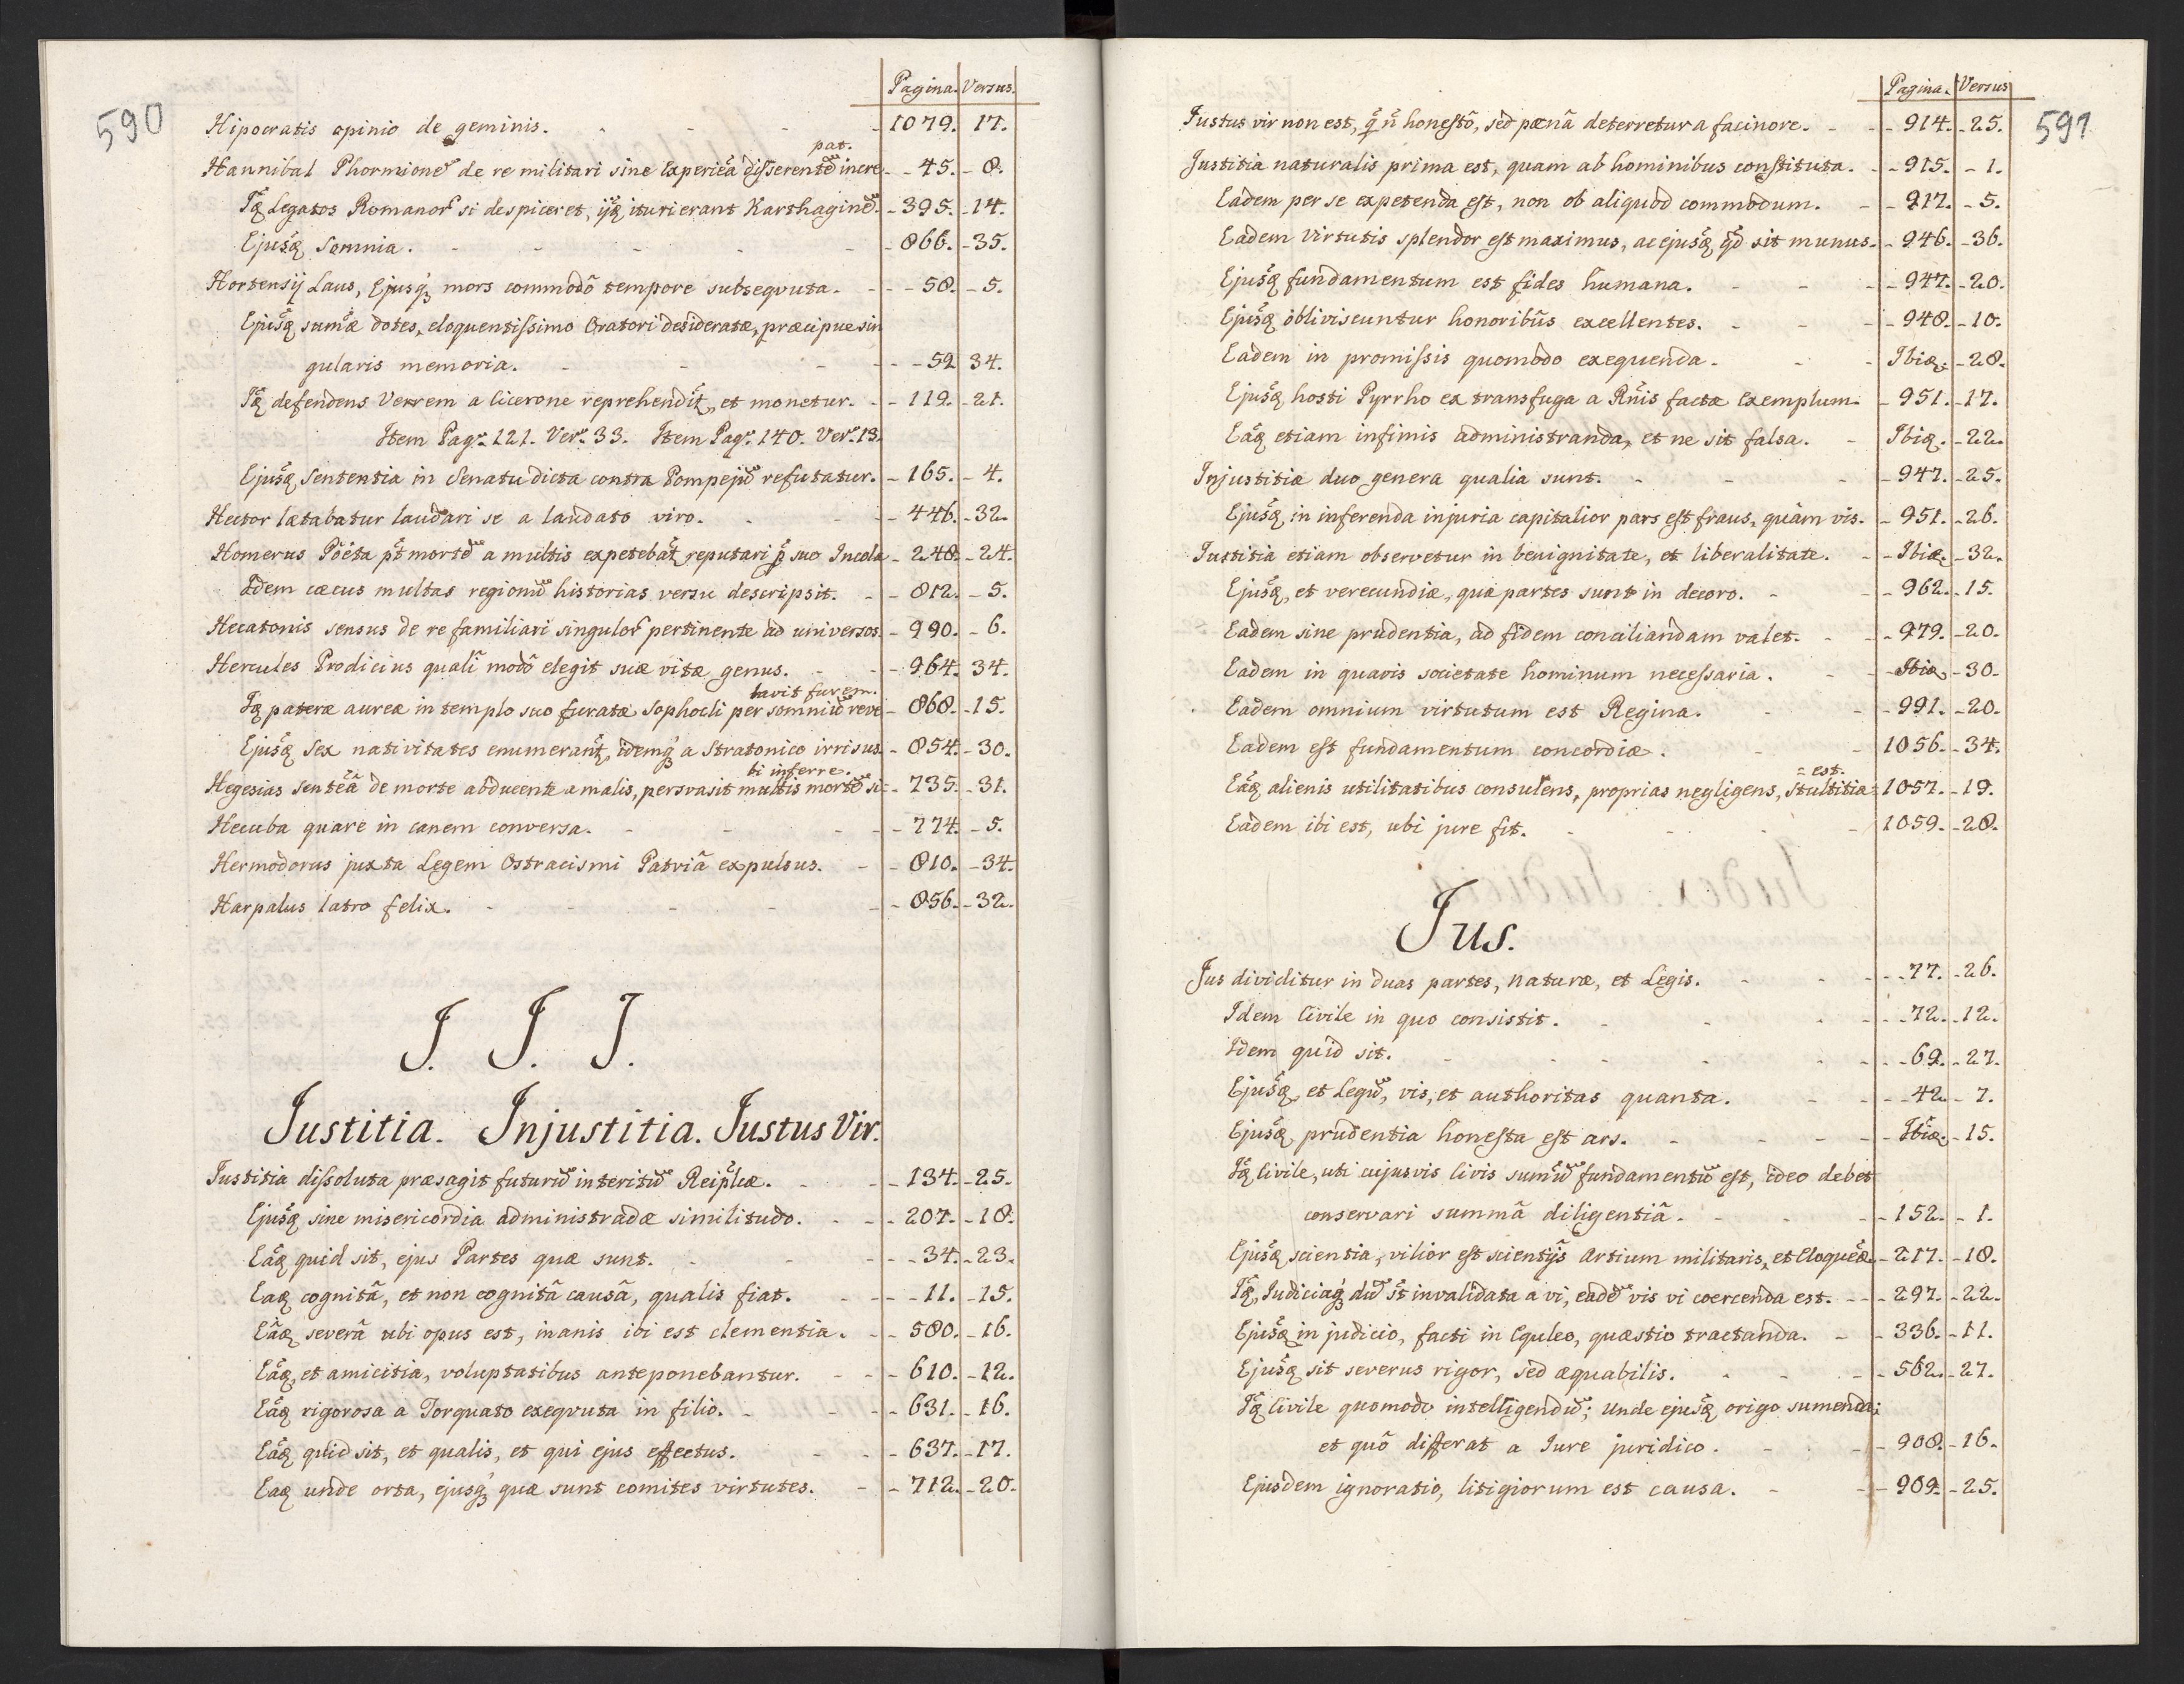 590
Pagina. Versus.
Hipocratis opinio de geminis. 1079. 17.
pat.
Hannibal Phormionē de re militari sine Experiēa disserentē incre 45. 8.
Iq̃ Legatos Romanor̃ si despiceret, ijq̃ ituri erant Karthaginē. 395. 14.
Ejusq̃ Somnia. 866. 35.
Hortensij Laus, Ejusq́; mors commodô tempore subseqvuta. 58. 5.
Ejusq̃ sum̃æ dotes, eloquentissimo Oratori desideratæ, præcipue sin
gularis memoria. 59 34.
Iq̃ defendens Verrem a Cicerone reprehendit̃, et monetur. 119. 21.
Item Pag. 121. Ver. 33. Item Pag. 140. Ver. 13.
Ejusq̃ Sententia in Senatu dicta contra Pompejũ refutatur. 165. 4.
Hector lætabatur laudari se a laudato viro. 446. 32.
Homerus Pöéta p̃t mortẽ a multis expetebãt reputari p̃ suo Incola 248. 24.
Idem cæcus multas regionũ historias versu descripsit. 812. 5.
Hecatonis sensus de re familiari singulor̃ pertinente ad universos. 990. 6.
Hercules Prodicius quali modô elegit suæ vitæ genus. 964. 34.
tavit furem.
Iq̃ pateræ aureæ in templo suo furatæ Sophocli per somniũ reve 868. 15.
Ejusq̃ Sex nativitates enumerant̃, idemq́; a Stratonico irrisus. 854. 30.
bi inferre.
Hegesias Sentẽa de morte abducente a malis, persvasit multis mortẽ si= 735. 31.
Hecuba quare in canem conversa. 774. 5.
Hermodorus juxta Legem Ostracismi Patriâ expulsus. 810. 34.
Harpalus latro felix. 856. 32.
J. J. J.
Justitia. Injustitia. Justus Vir.
Justitia dissoluta præsagit futurũ interitũ Reip̃licæ. 134. 25.
Ejusq̃ sine misericordia administradæ similitudo. 207. 18.
Eaq̃ quid sit, ejus Partes quæ sunt. 34. 23.
Eaq̃ cognitâ, et non cognitâ causâ, qualis fiat. 11. 15.
Eâq̃ severâ ubi opus est, inanis ibi est clementia. 580. 16.
Eaq̃, et amicitia, voluptatibus anteponebantur. 610. 12.
Eaq̃ rigorosa a Torquato exeqvuta in filio. 631. 16.
Eaq̃ quid sit, et qualis, et qui ejus effectus. 637. 17.
Eaq̃ unde orta, ejusq́; quæ sunt comites virtutes. 712. 20.
591
Pagina. Versus
Justus vir non est, q̃ ñ honestô, sed pœnâ deterretur a facinore. 914. 25.
Justitia naturalis prima est, quam ab hominibus constituta. 915. 1.
Eadem per se expetenda est, non ob aliquod commodum. 917. 5.
Eadem virtutis splendor est maximus, ac ejusq̃ q̃d sit munus. 946. 36.
Ejusq̃ fundamentum est fides humana. 947. 20.
Ejusq̃ obliviscuntur honoribûs excellentes. 948. 10.
Eadem in promissis quomodo exequenda. Ibiq̃. 28.
Ejusq̃ hosti Pyrrho ex transfuga a Rñis factæ Exemplum. 951. 17.
Eaq̃ etiam infimis administranda, et ne sit falsa. Ibiq̃. 22.
Injustitiæ duo genera qualia sunt. 947. 25.
Ejusq̃ in inferenda injuria capitalior pars est fraus, quàm vis. 951. 26.
Justitia etiam observetur in benignitate, et liberalitate. Ibiq̃. 32.
Ejusq̃, et verecundiæ, quæ partes sunt in decoro. 962. 15.
Eadem sine prudentia, ad fidem conciliandam valet. 979. 20.
Eadem in quavis societate hominum necessaria. Ibiq̃ 30.
Eadem omnium virtutum est Regina. 991. 20.
Eadem est fundamentum concordiæ. 1056. 34.
= est.
Eaq̃ alienis utilitatibus consulens, proprias negligens, Stultitia 1057. 19.
Eadem ibi est, ubi jure fit. 1059. 28.
Jus.
Jus dividitur in duas partes, naturæ, et Legis. 77. 26.
Idem Civile in quo consistit. 72. 12.
Idem quid sit. 69. 27.
Ejusq̃, et Legũ, vis, et authoritas quanta. 42. 7.
Ejusq̃ prudentia honesta est ars. Ibiq̃. 15.
Iq̃ Civile, uti cujusvis Civis sum̃ũ fundamentũ est, ideo debet
conservari summâ diligentiâ. 152. 1.
Ejusq̃ scientia, vilior est scientijs Artium militaris, et Eloquẽæ 217. 18.
Iq̃, Judiciaq́; dũ s̃t invalidata a vi, eadẽ vis vi coercenda est. 297. 22.
Ejusq̃ in judicio, facti in Equleo, quæstio tractanda. 336. 11.
Ejusq̃ sit severus rigor, sed æquabilis. 562. 27.
Iq̃ Civile quomodo intelligendũ; unde ejusq̃ origo sumenda;
et quô differat a Jure juridico. 908. 16.
Ejusdem ignoratio, litigiorum est causa. 909. 25.